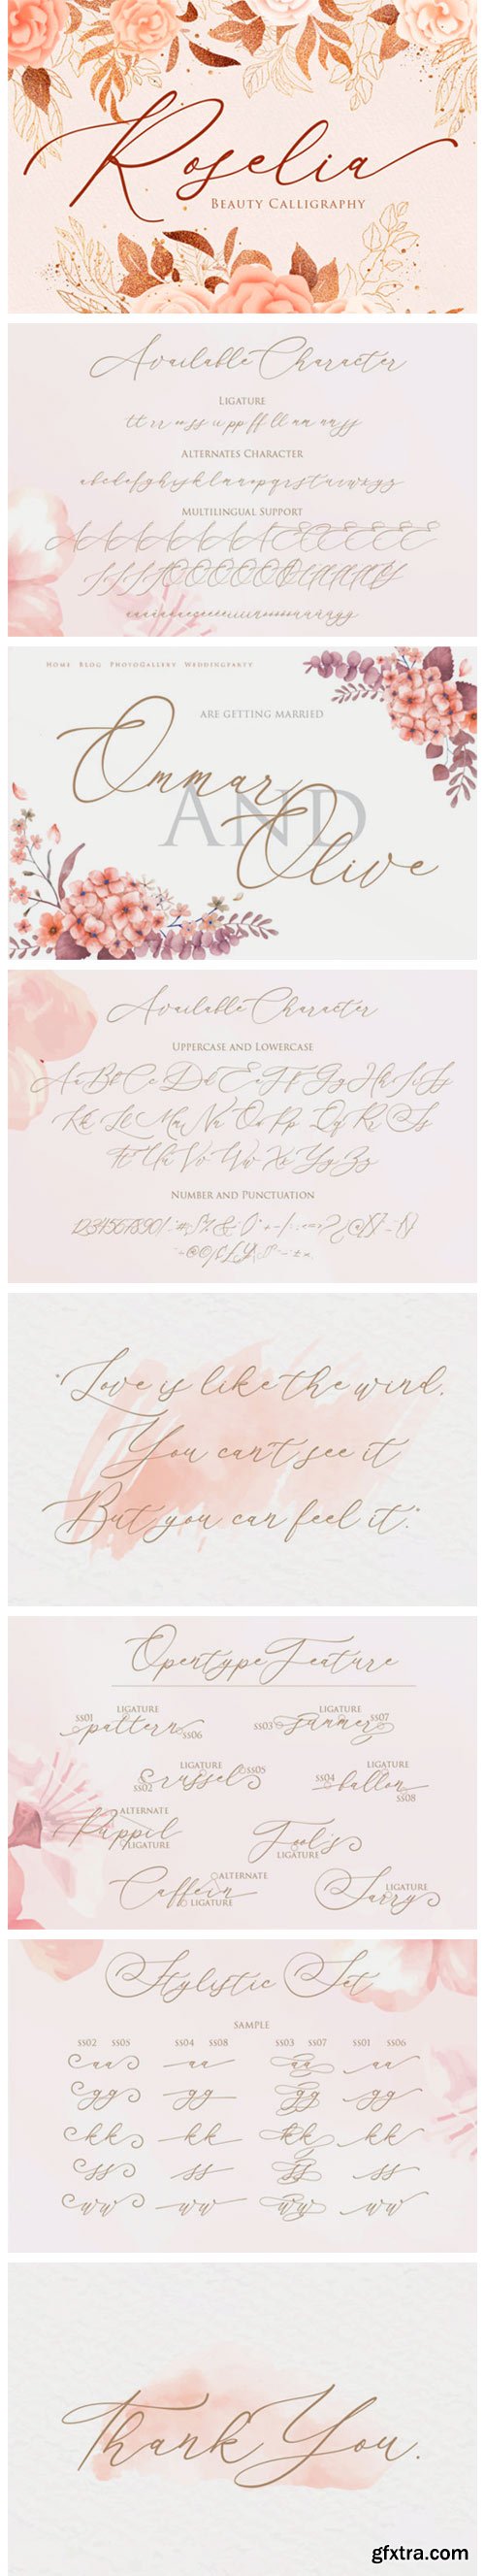 Roselia
BEAUTY CALLIGRAPHY
Available Character
LIGATURE
ALTERNATES CHARACTER
abcdefghijklmnopqrstuvwxyz
MULTILINGUAL SUPPORT
HOME BLOG PHOTOGALLERY WEDDINGPARTY
ARE GETTING MARRIED
Ommar
AND
Olive
Available Character
UPPERCASE AND LOWERCASE
Aa Bb Cc Dd Ee Ff Gg Hh Ii Jj
Kk Ll Mm Nn Oo Pp Qq Rr Ss
Tt Uu Vv Ww Xx Yy Zz
NUMBER AND PUNCTUATION
"Love is like the wind.
You can't see it
But you can feel it."
Opentype Feature
SS01 LIGATURE
pattern SS06
LIGATURE SS07
SS03 summer
LIGATURE SS05
SS02 russel
LIGATURE
SS04 ballon
SS08
ALTERNATE
Puppil
LIGATURE
Fool's
LIGATURE
ALTERNATE
Caffein
LIGATURE
LIGATURE
Sarry
Stylistic Set
SAMPLE
SS02 SS05 SS04 SS08 SS03 SS07 SS01 SS06
aa aa aa aa
gg gg gg gg
kk kk kk kk
ss ss ss ss
ww ww ww ww
Thank You.
gfxtra.com